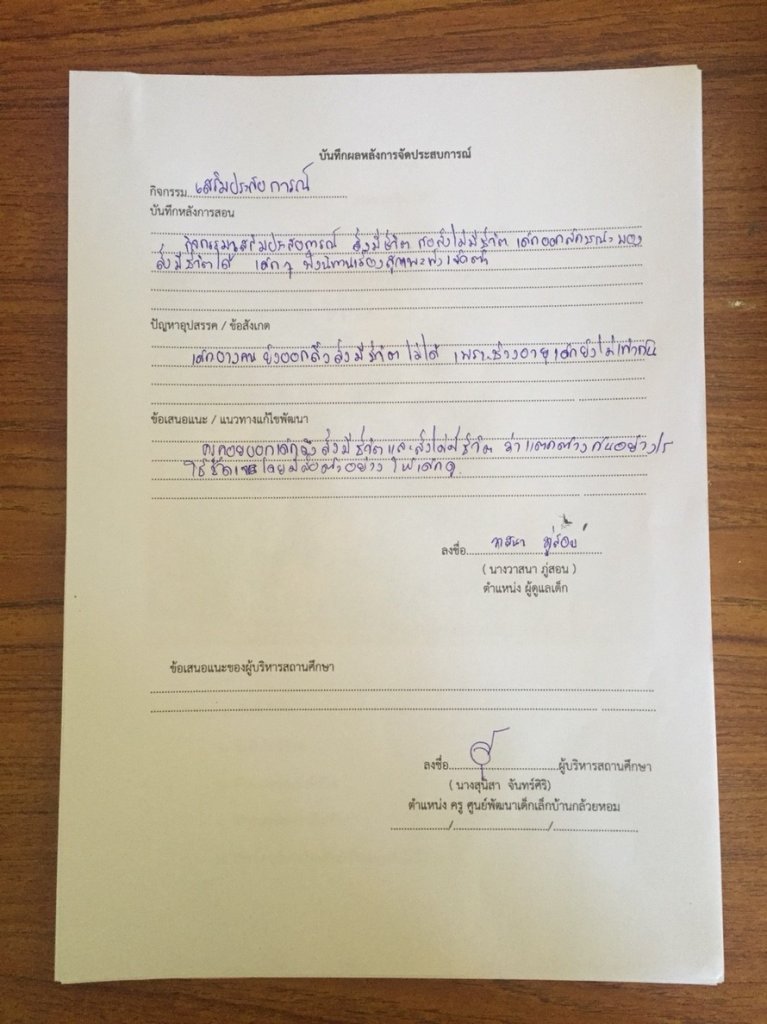 บันทึกผลหลังการจัดประสบการณ์
กิจกรรม...เสริมประสบการณ์
บันทึกหลังการสอน
กิจกรรมเสริมประสบการณ์ สิ่งมีชีวิต สิ่งไม่มีชีวิต เด็กบอกลักษณะของ
สิ่งมีชีวิตได้ เด็กๆ ฟังนิทานเรื่อง
ปัญหาอุปสรรค / ข้อสังเกต
เด็กบางคน ยังบอกถึงสิ่งมีชีวิตไม่ได้ เพราะช่วงอายุเด็กยังไม่เท่ากัน
ข้อเสนอแนะ / แนวทางแก้ไขพัฒนา
ครูคอยบอกเด็กถึงสิ่งมีชีวิตและสิ่งไม่มีชีวิต ว่าแตกต่างกันอย่างไร
ให้ชัดเจนโดยมีสื่อตัวอย่าง ให้เด็กดู
ลงชื่อ...วาสนา ภู่สอน
( นางวาสนา ภู่สอน )
ตำแหน่ง ผู้ดูแลเด็ก
ข้อเสนอแนะของผู้บริหารสถานศึกษา
ลงชื่อ...ผู้บริหารสถานศึกษา
( นางสุนิสา จันทร์ศิริ)
ตำแหน่ง ครู ศูนย์พัฒนาเด็กเล็กบ้านกล้วยหอม